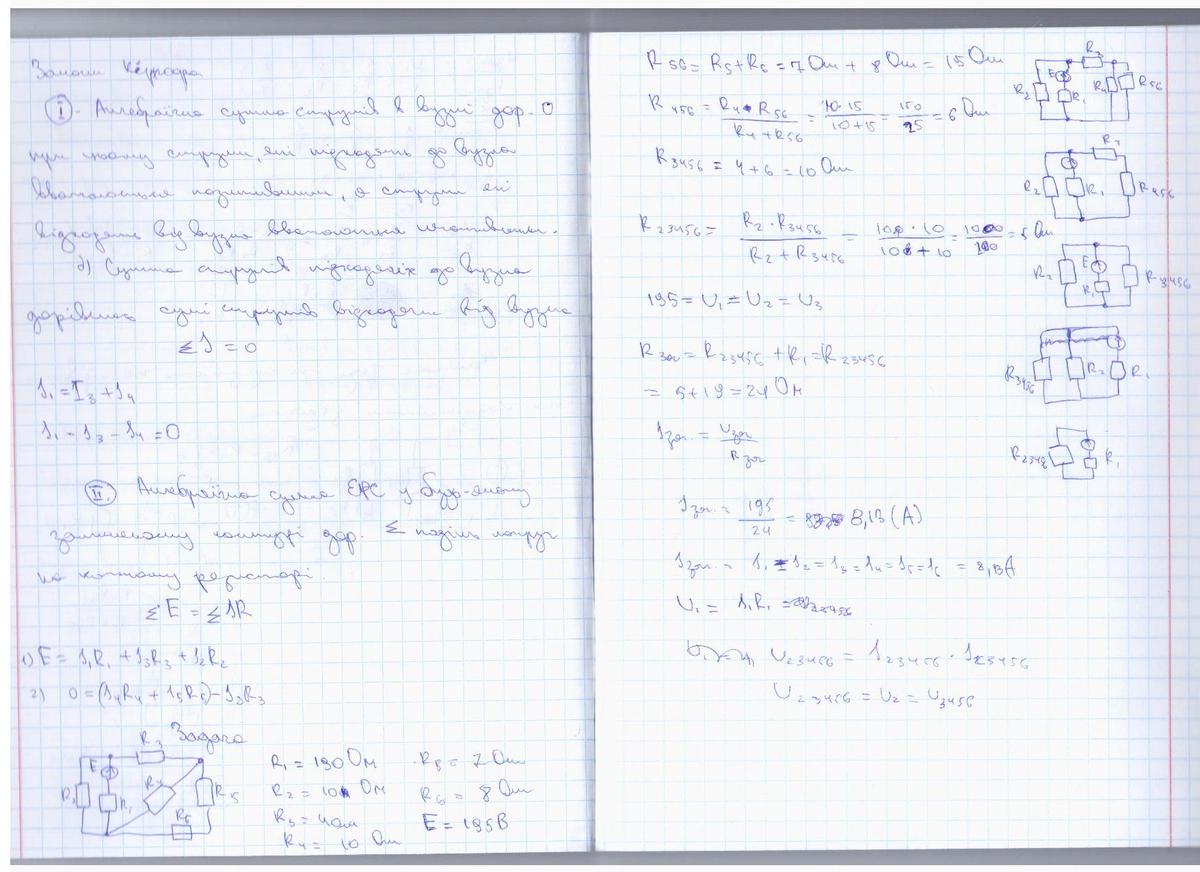 Закони Кірхгофа
I. Алгебраїчна сумма струмів в вузлі дор. 0
при цьому струми, які підходять до вузла
вважаються позитивними, а струми які
відходять від вузла вважаються негативними.
2) Сумма струмів підходящіх до вузла
дорівнює сумі струмів відходячи від вузла
ΣI = 0
I₁ = I₃ + I₄
I₁ - I₃ - I₄ = 0
II. Алгебраїчна сумма ЕРС у будь-якому
замкненому контурі дор. Σ падінь напруг
на кожному резисторі.
ΣE = ΣIR
1) E = I₁R₁ + I₃R₃ + I₂R₂
2) 0 = (I₄R₄ + I₅R₅) - I₃R₃
Задача
R₃
E
R₂
R₁
R₄
R₅
R₆
R₁ = 190 Ом
R₂ = 10 Ом
R₃ = 4 Ом
R₄ = 10 Ом
R₅ = 7 Ом
R₆ = 8 Ом
E = 195 В
R₅₆ = R₅ + R₆ = 7 Ом + 8 Ом = 15 Ом
R₄₅₆ = R₄ · R₅₆ / R₄ + R₅₆ = 10 · 15 / 10 + 15 = 150 / 25 = 6 Ом
R₃₄₅₆ = 4 + 6 = 10 Ом
R₂₃₄₅₆ = R₂ · R₃₄₅₆ / R₂ + R₃₄₅₆ = 10 · 10 / 10 + 10 = 100 / 20 = 5 Ом
195 = U₁ = U₂ = U₃
Rзаг = R₂₃₄₅₆ + R₁ = R₂₃₄₅₆
= 5 + 19 = 24 Ом
Iзаг. = Uзаг / Rзаг
Iзаг. = 195 / 24 = 8,13 (А)
Iзаг. = I₁ = I₂ = I₃ = I₄ = I₅ = I₆ = 8,13 А
U₁ = I₁R₁ =
U₂₃₄₅₆ = I₂₃₄₅₆ · I₂₃₄₅₆
U₂₃₄₅₆ = U₂ = U₃₄₅₆
R₃
E
R₂
R₁
R₄
R₅₆
R₃
R₂
R₁
R₄₅₆
E
R₂
R₁
R₃₄₅₆
R₃₄₅₆
R₂
R₁
R₁